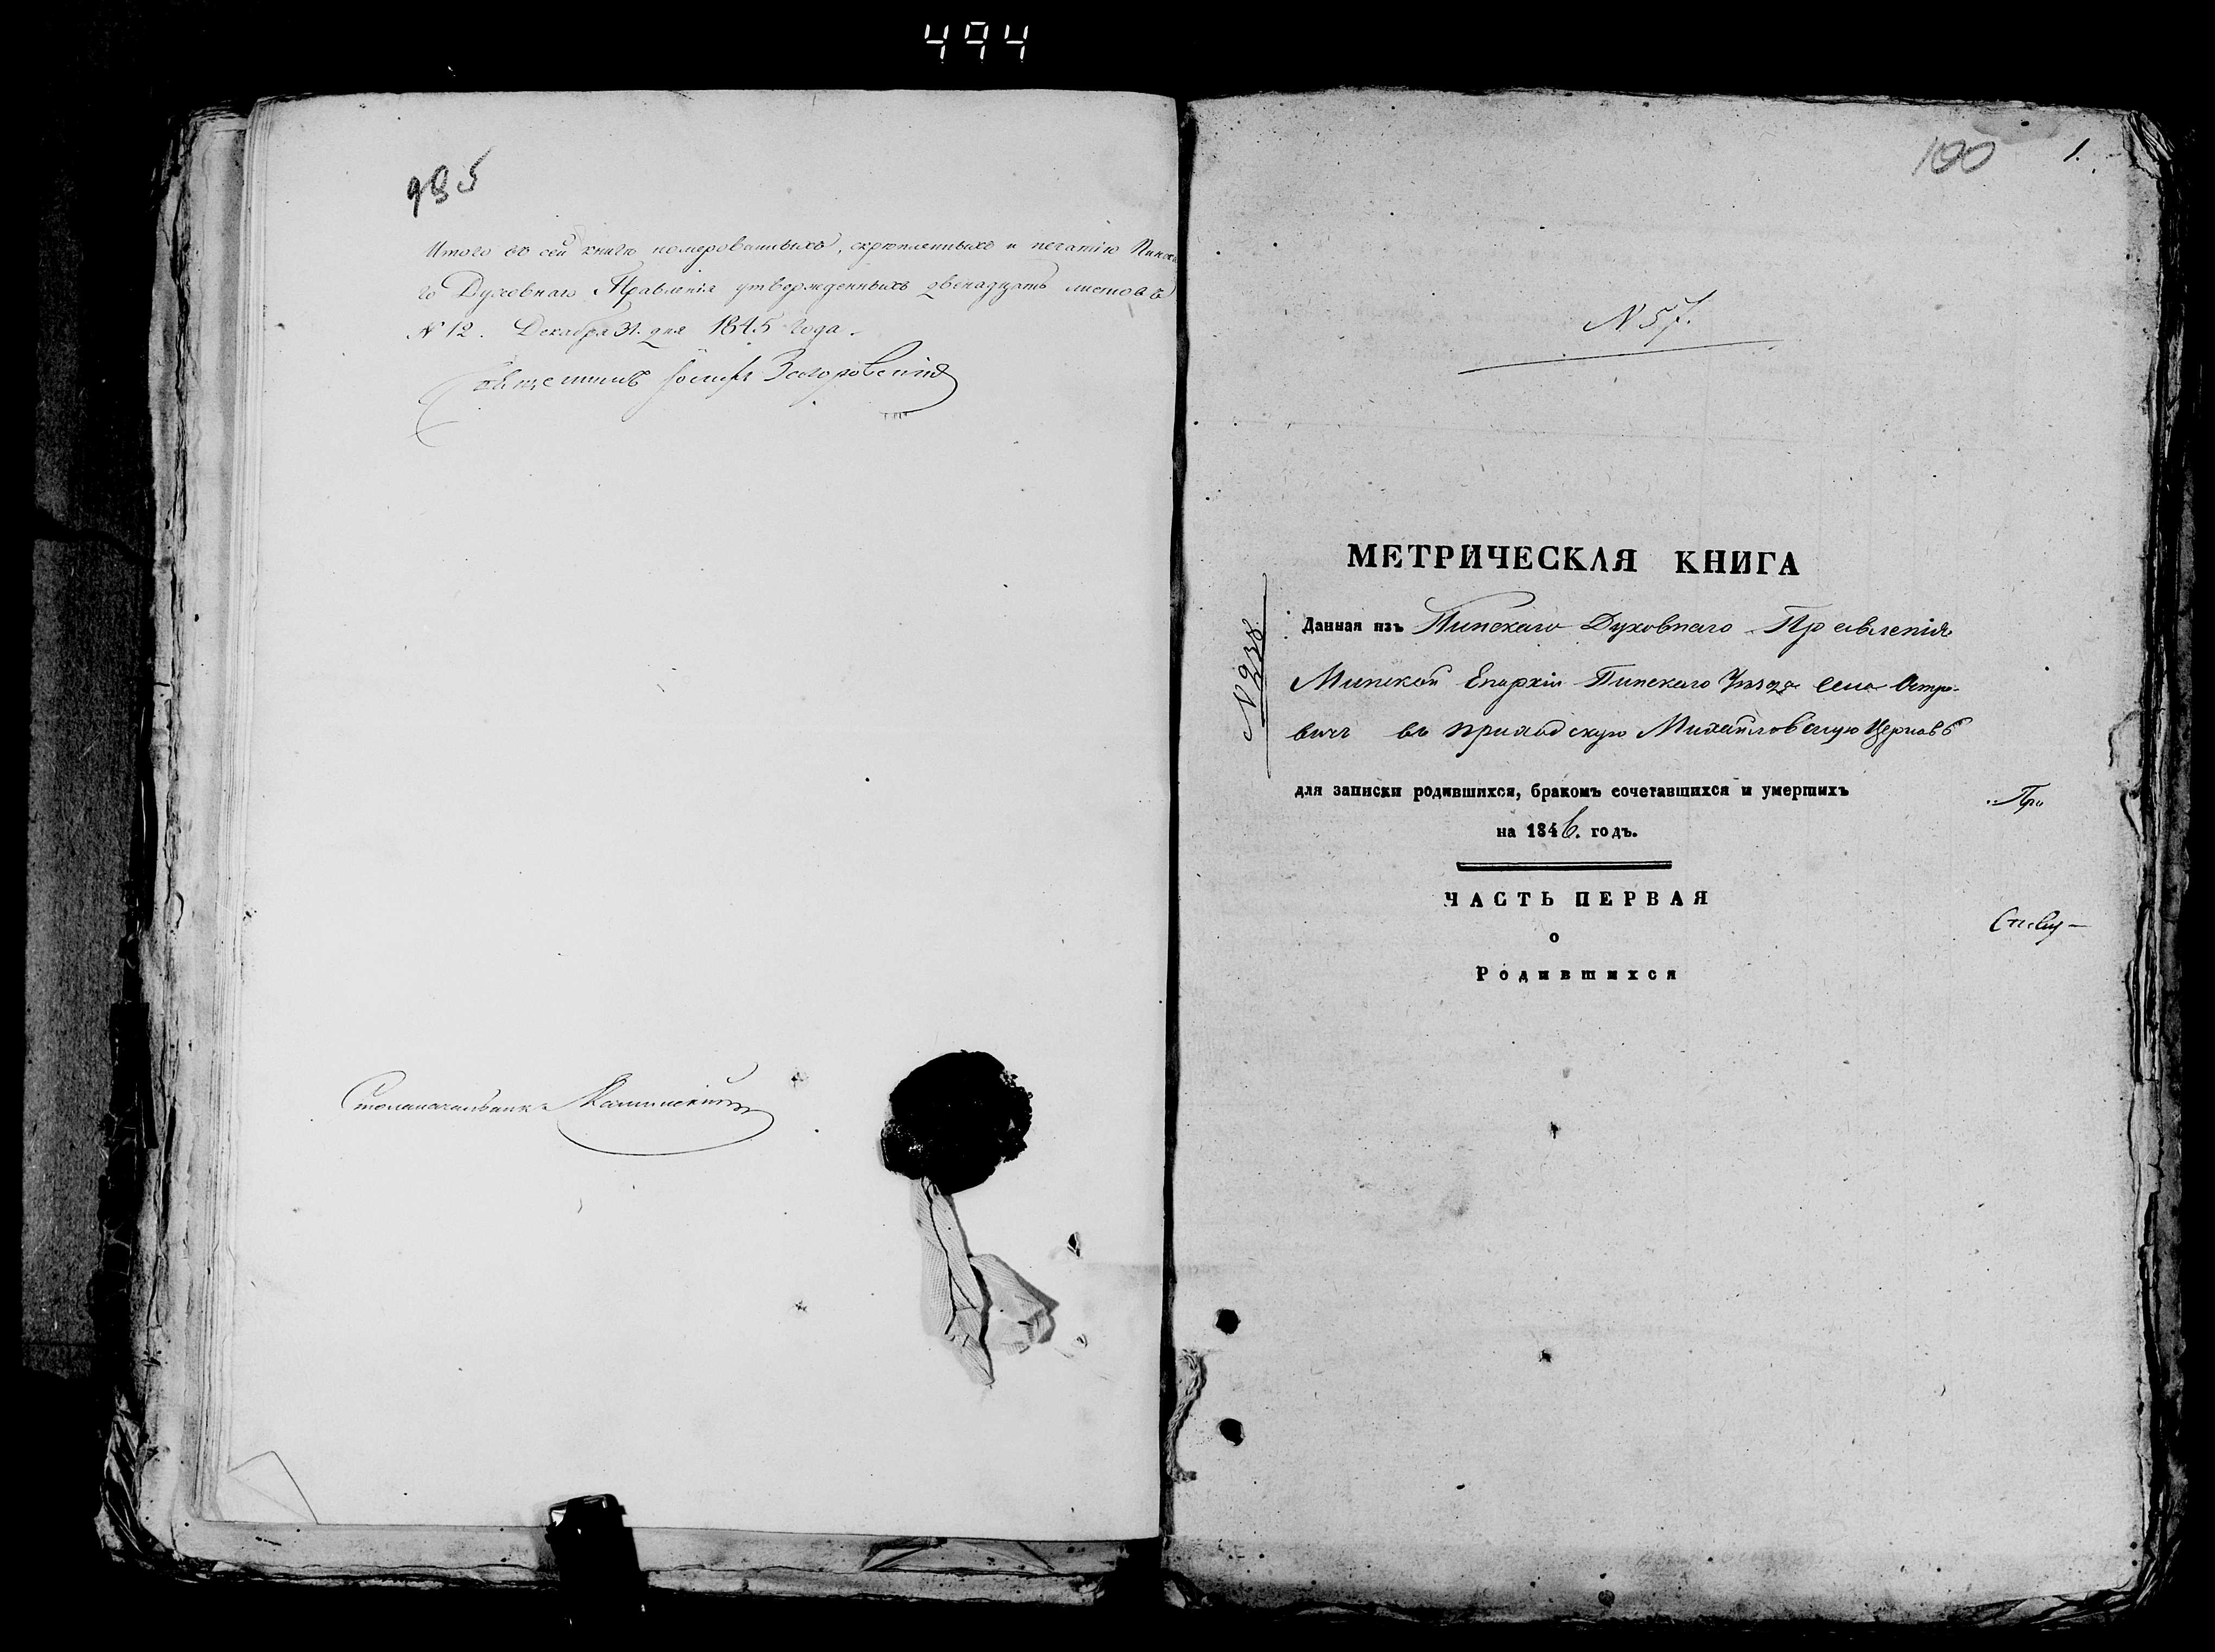 494
985
Итого въ сей книгѣ номерованныхъ, скрѣпленныхъ и печатію Пинска
го Духовнаго Правленія утвержденныхъ двенадцать листовъ
№ 12. Декабря 31. дня 1845 года.
Іосифъ
Столоначальникъ
100
1.
№ 57.
МЕТРИЧЕСКАЯ КНИГА
Данная изъ Пинскаго Духовнаго Правленія
Минской Епархіи Пинскаго Уѣзда села Остро-
вичъ въ приходскую Михайловскую Церковь
№ 238.
для записки родившихся, бракомъ сочетавшихся и умершихъ
на 1846. годъ.
При
ЧАСТЬ ПЕРВАЯ
о
Родившихся